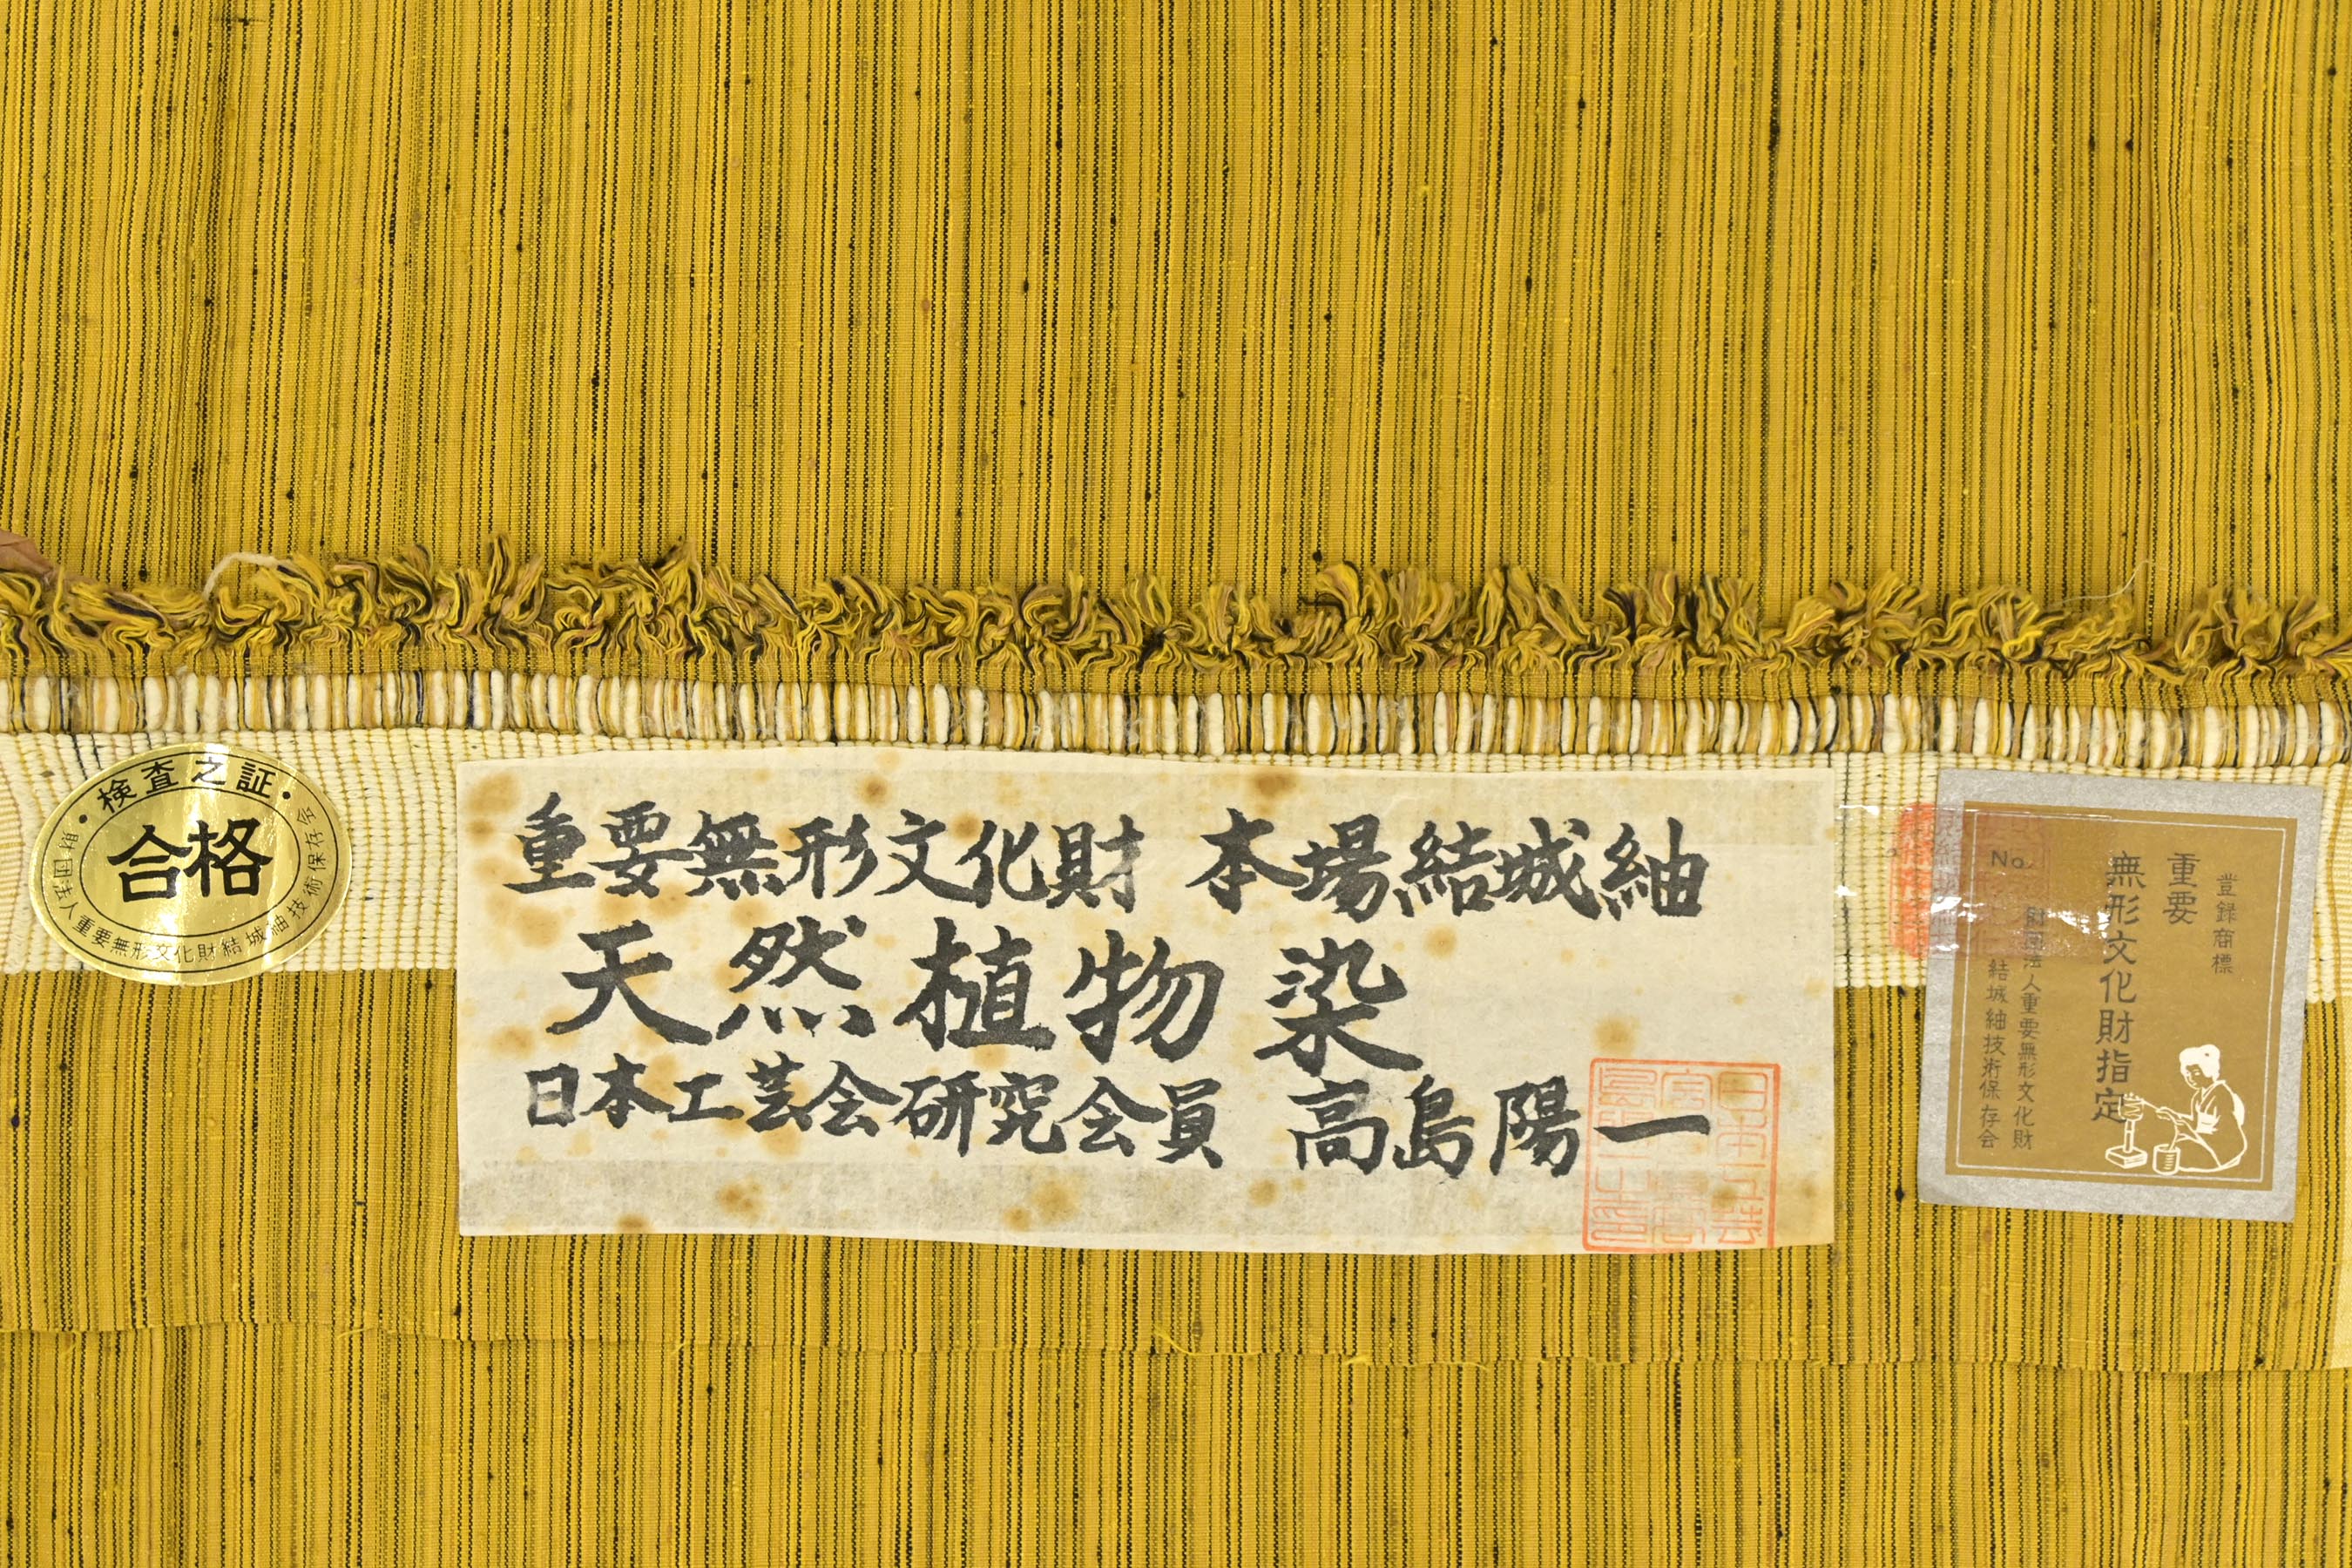 検査之証
合格
財団法人重要無形文化財結城紬技術保存会
重要無形文化財 本場結城紬
天然植物染
日本工芸会研究会員 高島陽一
登録商標
重要
無形文化財指定
No.
財団法人重要無形文化財
結城紬技術保存会